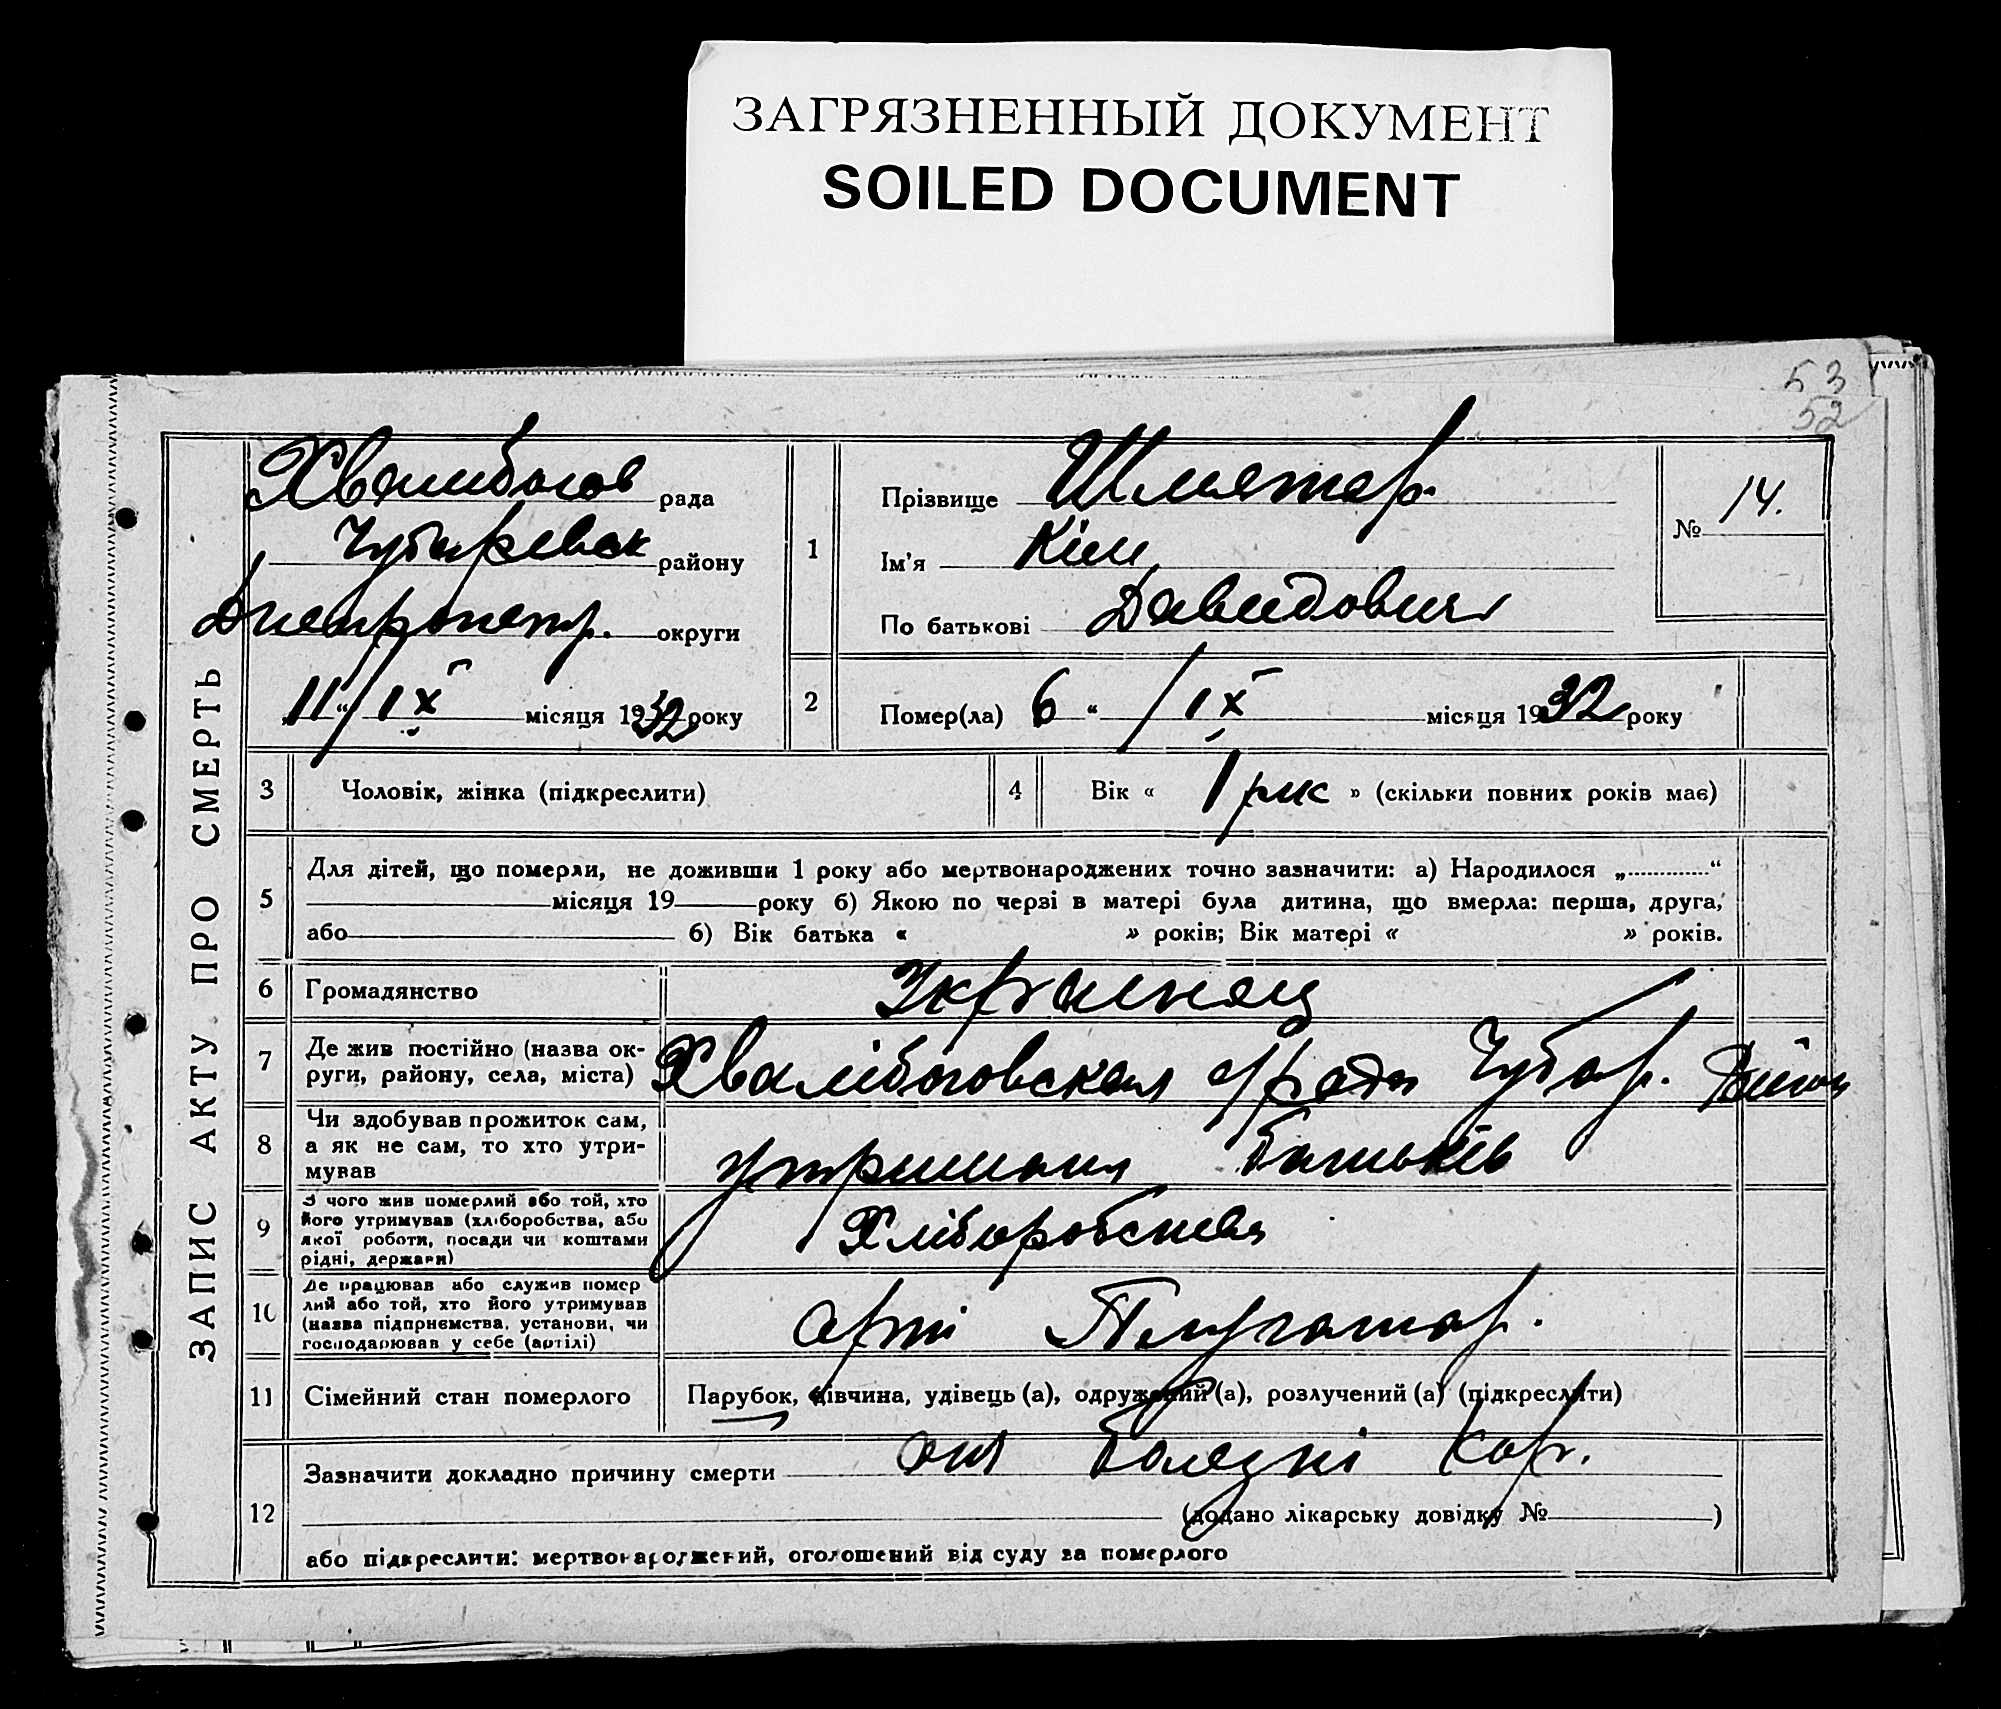 ЗАГРЯЗНЕННЫЙ ДОКУМЕНТ
SOILED DOCUMENT
53
52
ЗАПИС АКТУ ПРО СМЕРТЬ
Хвалибогов рада
Чубаревск району
Днепропетр. округи
„11“ / IX місяця 1932 року
1
Прізвище Шлятар.
Ім'я Кім
По батькові Давидович
№ 14.
2
Помер(ла) 6 “ / IX місяця 1932 року
3 Чоловік, жінка (підкреслити)
4 Вік « 1 рик » (скільки повних років має)
5
Для дітей, що померли, не доживши 1 року або мертвонароджених точно зазначити: а) Народилося „ “
місяця 19 року б) Якою по черзі в матері була дитина, що вмерла: перша, друга,
або б) Вік батька « » років; Вік матері « » років.
6 Громадянство Украинец
7
Де жив постійно (назва ок-
руги, району, села, міста) Хвалібоговская с/рада Чубар. Район
8
Чи здобував прожиток сам,
а як не сам, то хто утри-
мував утриманя батьків
9
З чого жив померлий або той, хто
його утримував (хліборобства, або
якої роботи, посади чи коштами
рідні, держави) Хліборобства
10
Де працював або служив помер
лий або той, хто його утримував
(назва підприємства, установи, чи
господарював у себе (артілі) арті Плугатар.
11 Сімейний стан померлого Парубок, дівчина, удівець (а), одружений (а), розлучений (а) (підкреслити)
12
Зазначити докладно причину смерти от болезні кор.
(додано лікарську довідку № )
або підкреслити: мертвонароджений, оголошений від суду за померлого